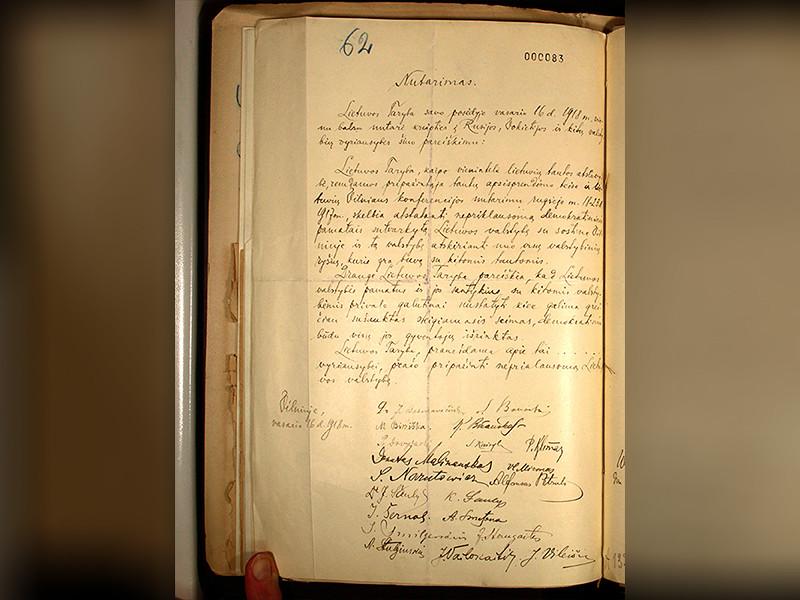 62
000083
Nutarimas.
Lietuvos Taryba savo posėdyje vasario 16 d. 1918 m. vie-
nu balsu nutarė kreiptis į Rusijos, Vokietijos ir kitų valsty-
bių vyriausybes šiuo pareiškimu:
Lietuvos Taryba, kaipo vienintelė lietuvių tautos atstovy-
bė, remdamos pripažintąja tautų apsisprendimo teise ir lie-
tuvių Vilniaus konferencijos nutarimu rugsėjo m. 18-23 d.
1917 m., skelbia atstatanti nepriklausomą demokratiniais
pamatais sutvarkytą Lietuvos valstybę su sostine Vil-
niuje ir tą valstybę atskirianti nuo visų valstybinių
ryšių, kurie yra buvę su kitomis tautomis.
Drauge Lietuvos Taryba pareiškia, kad Lietuvos
valstybės pamatus ir jos santykius su kitomis valsty-
bėmis privalo galutinai nustatyti kiek galima grei-
čiau sušauktas steigiamasis seimas, demokratiniu
būdu visų jos gyventojų išrinktas.
Lietuvos Taryba, pranešdama apie tai . . . . . .
vyriausybei, prašo pripažinti nepriklausomą Lietu-
vos valstybę.
Vilniuje,
vasario 16 d. 1918 m.
Dr J. Basanavičius
M. Biržiška.
S. Kairys
P. Klimas
Donatas Malinauskas
Vl. Mironas
S. Narutowicz
Alfonsas Petrulis
Dr J. Šaulys
K. Šaulys
J. Šernas.
A. Smetona
J. Smilgevičius
J. Staugaitis
A. Stulginskis
J. Vailokaitis
J. Vileišis